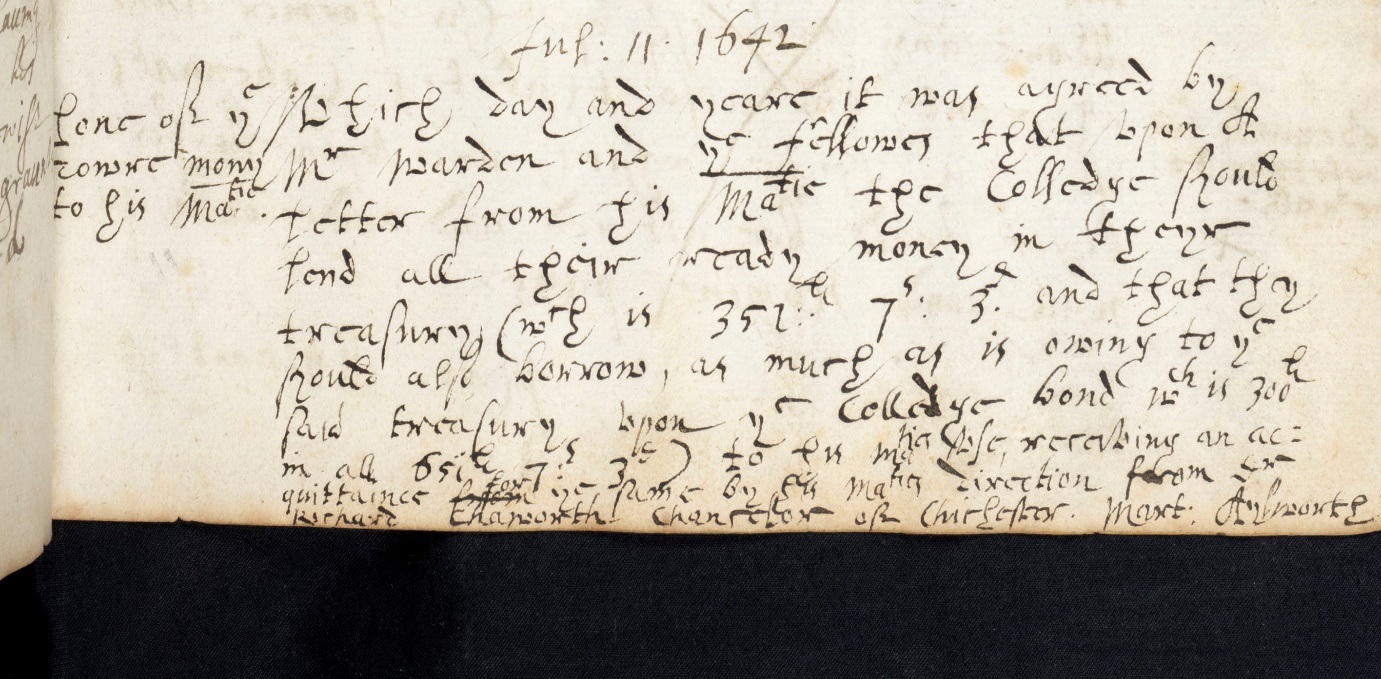 Jul: 11. 1642
Lone of ye
towre mony
to his Matie.
Which day and yeare it was agreed by
Mr Warden and ye fellowes that upon A
Letter from his Matie the Colledge should
lend all their ready money in theyr
treasury (wch is 351li: 7s: 3d. and that they
should also borrow, as much as is owing to ye
said treasury upon ye Colledge bond wch is 300li
in all 651li 7s 3d) to his Maties Use, receiving an ac=
quittaince for ye same by his Maties direction from Dr
Richard Chaworth Chancelor of Chichester. Mart: Aylworth